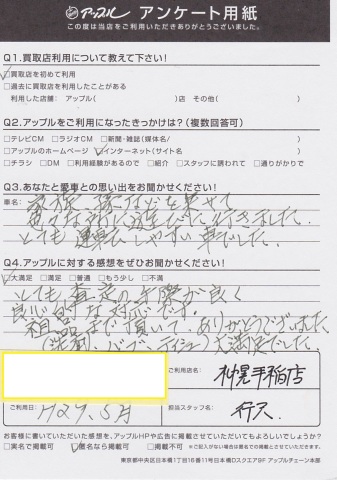 アップル アンケート用紙
この度は当店をご利用いただきありがとうございました。
Q1.買取店利用について教えて下さい!
□買取店を初めて利用
□過去に買取店を利用したことがある
利用した店舗: アップル( )店 その他( )
Q2.アップルをご利用になったきっかけは?(複数回答可)
□テレビCM □ラジオCM □新聞・雑誌(媒体名/ )
□アップルのホームページ □インターネット(サイト名 )
□チラシ □DM □利用経験があるので □紹介 □スタッフに誘われて □通りがかりで
Q3.あなたと愛車との思い出をお聞かせください!
車名:
家族、孫などを乗せて
色々な所に遊びに行きました。
とても運転しやすい車でした。
Q4.アップルに対する感想をぜひお聞かせください!
□大満足 □満足 □普通 □もう少し □不満
とても査定の手際が良く
良心的な対応です。
粗品まで頂いて、ありがとうございました、
(洗剤、 ティシュ)大満足でした。
ご利用店名: 札幌手稲店
ご利用日: H29.5月
担当スタッフ名:
お客様に書いていただいた感想を、アップルHPや広告に掲載させていただいてもよろしいでしょうか?
□実名で掲載可 □匿名なら掲載可 □掲載不可 (※ご記入がない場合は匿名の掲載とさせていただきます。)
東京都中央区日本橋1丁目16番11号日本橋Dスクエア9F アップルチェーン本部